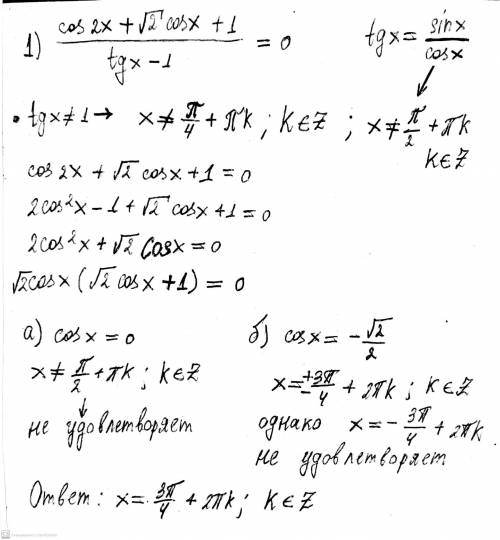 1) (cos 2x + √2 cosx + 1) / (tgx − 1) = 0
tgx = sinx / cosx
• tgx ≠ 1 → x ≠ π/4 + πk ; k ∈ Z ; x ≠ π/2 + πk
k ∈ Z
cos 2x + √2 cosx + 1 = 0
2cos²x − 1 + √2 cosx + 1 = 0
2cos²x + √2 cosx = 0
√2cosx (√2 cosx + 1) = 0
а) cosx = 0
x ≠ π/2 + πk ; k ∈ Z
не удовлетворяет
б) cosx = − √2/2
x = ± 3π/4 + 2πk ; k ∈ Z
однако x = − 3π/4 + 2πk
не удовлетворяет
Ответ : x = 3π/4 + 2πk ; k ∈ Z